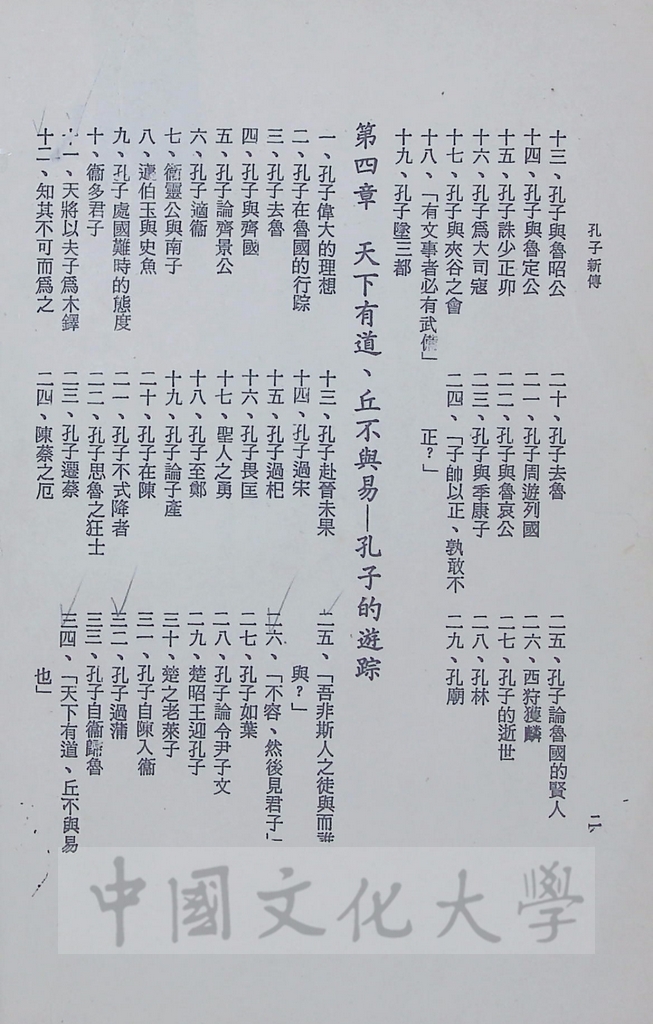 孔子新傳
十三、孔子與魯昭公
十四、孔子與魯定公
十五、孔子誅少正卯
十六、孔子爲大司寇
十七、孔子與夾谷之會
十八、「有文事者必有武備」
十九、孔子墮三都
二十、孔子去魯
二一、孔子周遊列國
二二、孔子與魯哀公
二三、孔子與季康子
二四、「子帥以正、孰敢不
正？」
二五、孔子論魯國的賢人
二六、西狩獲麟
二七、孔子的逝世
二八、孔林
二九、孔廟
二
第四章 天下有道、丘不與易—孔子的遊踪
一、孔子偉大的理想
二、孔子在魯國的行踪
三、孔子去魯
四、孔子與齊國
五、孔子論齊景公
六、孔子適衞
七、衞靈公與南子
八、蘧伯玉與史魚
九、孔子處國難時的態度
十、衞多君子
十一、天將以夫子爲木鐸
十二、知其不可而爲之
十三、孔子赴晉未果
十四、孔子過宋
十五、孔子過杞
十六、孔子畏匡
十七、聖人之勇
十八、孔子至鄭
十九、孔子論子產
二十、孔子在陳
二一、孔子不式降者
二二、孔子思魯之狂士
二三、孔子遷蔡
二四、陳蔡之厄
二五、「吾非斯人之徒與而誰
與？」
二六、「不容、然後見君子」
二七、孔子如葉
二八、孔子論令尹子文
二九、楚昭王迎孔子
三十、楚之老萊子
三一、孔子自陳入衞
三二、孔子過蒲
三三、孔子自衞歸魯
三四、「天下有道、丘不與易
也」
中國文化大學